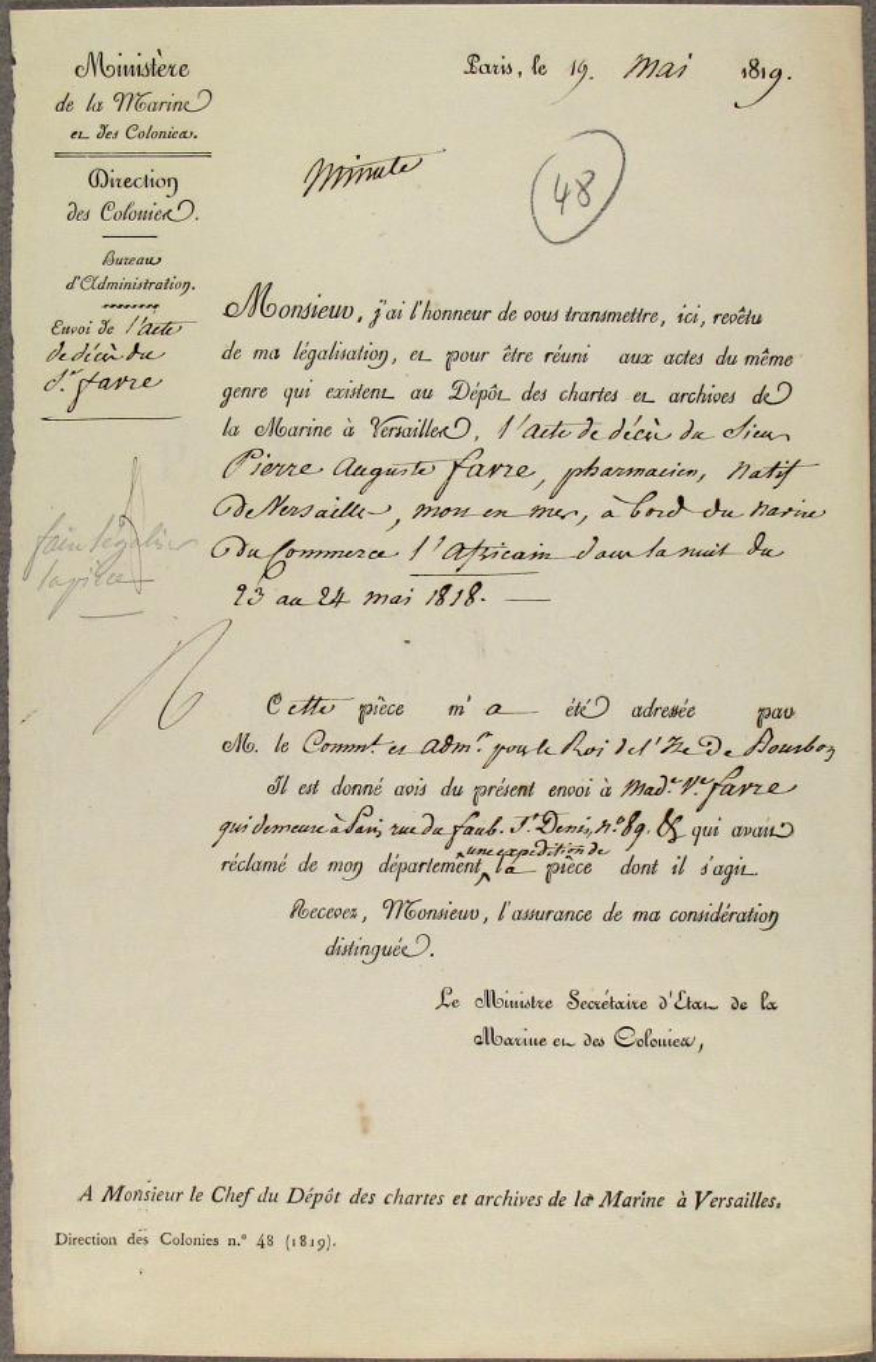 Ministère
de la Marine
et des Colonies.
Direction
des Colonies.
Bureau
d'Administration.
Envoi de l'acte
de décès du
S.r favre
faire légaliser
la pièce
Paris, le 19. Mai 1819.
Minute
48
Monsieur, j'ai l'honneur de vous transmettre, ici, revêtu
de ma légalisation, et pour être réuni aux actes du même
genre qui existent au Dépôt des chartes et archives de
la Marine à Versailles, l'acte de décès du Sieur
Pierre Auguste favre, pharmacien, natif
De Versailles, mort en mer, à bord du navire
Du Commerce l'Africain dans la nuit du
23 au 24 mai 1818. —
Cette pièce m'a été adressée par
M. le Commt. et adm.r pour le Roi de l'Ile De Bourbon
Il est donné avis du présent envoi à Mad.e V.e favre
qui demeure à Paris, rue du faub. St. Denis, n.o 89. & qui avait
une expédition de
réclamé de mon département, la pièce dont il s'agit.
Recevez, Monsieur, l'assurance de ma considération
distinguée.
Le Ministre Secrétaire d'Etat de la
Marine et des Colonies,
A Monsieur le Chef du Dépôt des chartes et archives de la Marine à Versailles.
Direction des Colonies n.º 48 (1819).